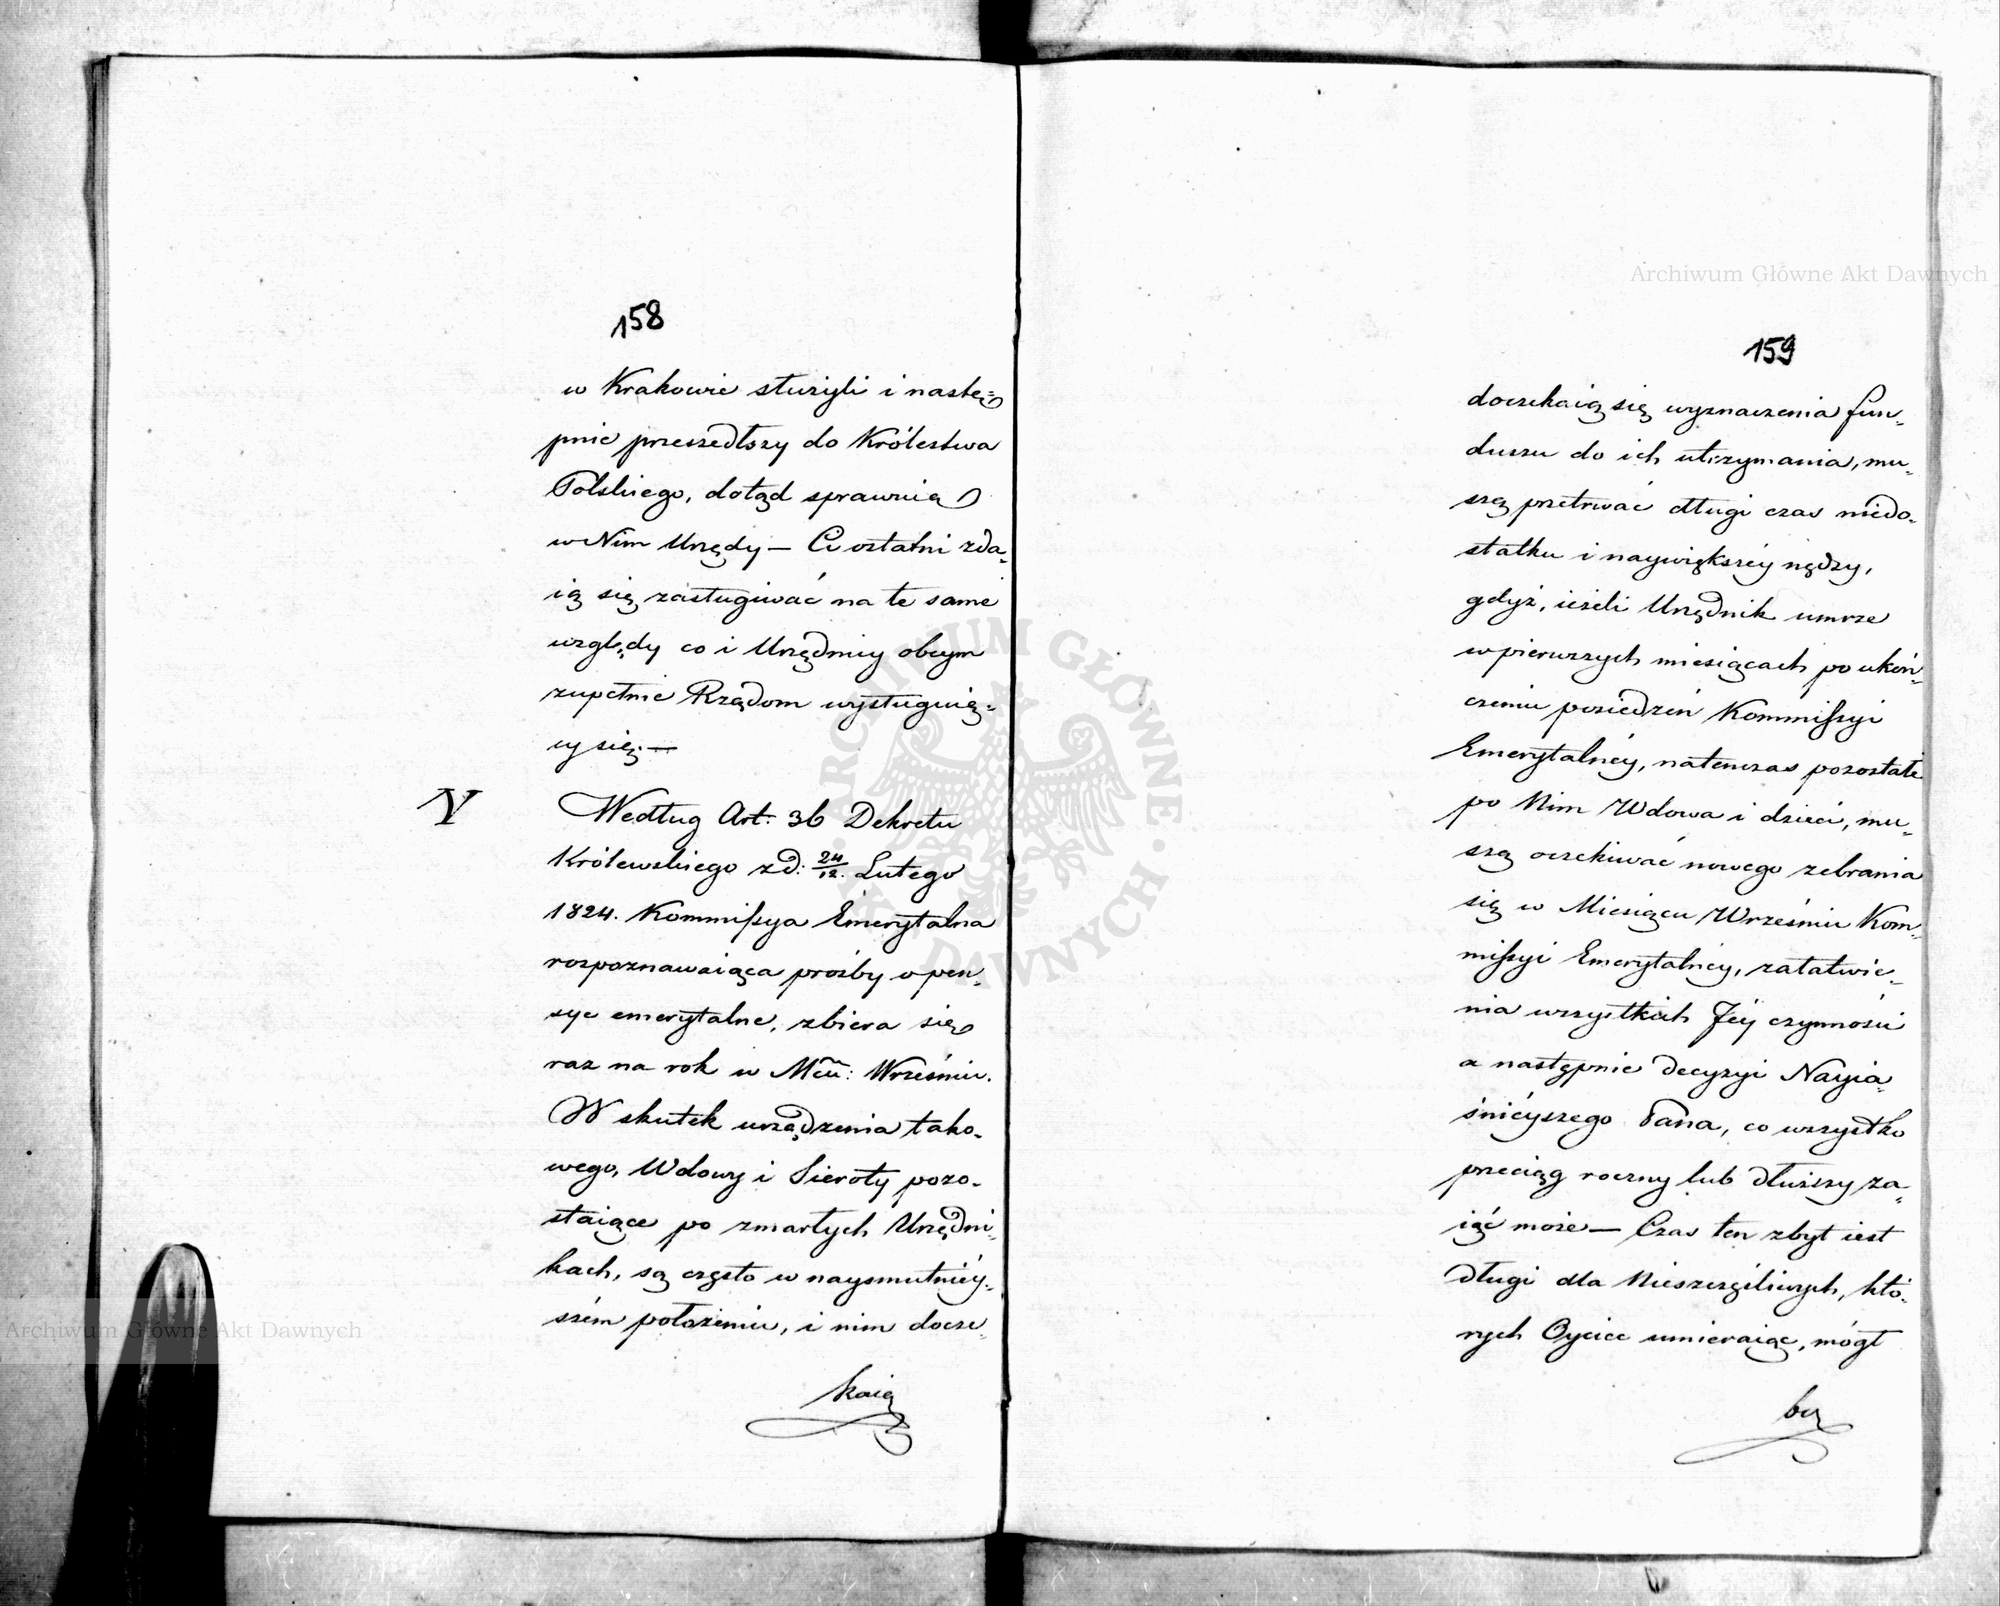 158
w Krakowie służyli i nastę=
pnie przeszedłszy do Królestwa
Polskiego, dotąd sprawuią
w Nim Urzędy — Ci ostatni zda-
ią się zasługiwać na te same
względy co i Urzędnicy obcym
zupełnie Rządom wysługuią-
cy się. —
V
Według Art: 36 Dekretu
Królewskiego z d: 24/12. Lutego
1824. Kommissya Emerytalna
rozpoznawaiąca prośby o pen-
sye emerytalne, zbiera się
raz na rok w Mcu: Wrześniu.
W skutek urządzenia tako-
wego, Wdowy i Sieroty pozo-
staiące po zmarłych Urzędni-
kach, są często w naysmutniéy-
szém położeniu, i nim docze-
kaią
159
doczekaią się wyznaczenia fun-
duszu do ich utrzymania, mu-
szą przetrwać długi czas niedo-
statku i naywiększéy nędzy,
gdyż, ieżeli Urzędnik umrze
w pierwszych miesiącach po ukoń-
czeniu posiedzeń Kommissyi
Emerytalnéy, natenczas pozostałe
po Nim Wdowa i dzieci, mu-
szą oczekiwać nowego zebrania
się w Miesiącu Wrześniu Kom-
missyi Emerytalnéy, załatwie-
nia wszystkich Jéy czynności
a następnie decyzyi Nayia-
śniéyszego Pana, co wszystko
przeciąg roczny lub dłuższy za-
iąć może — Czas ten zbyt iest
długi dla Nieszczęśliwych, któ-
rych Oyciec umieraiąc, mógł
być
Archiwum Główne Akt Dawnych
Archiwum Główne Akt Dawnych
ARCHIWUM GŁÓWNE AKT DAWNYCH